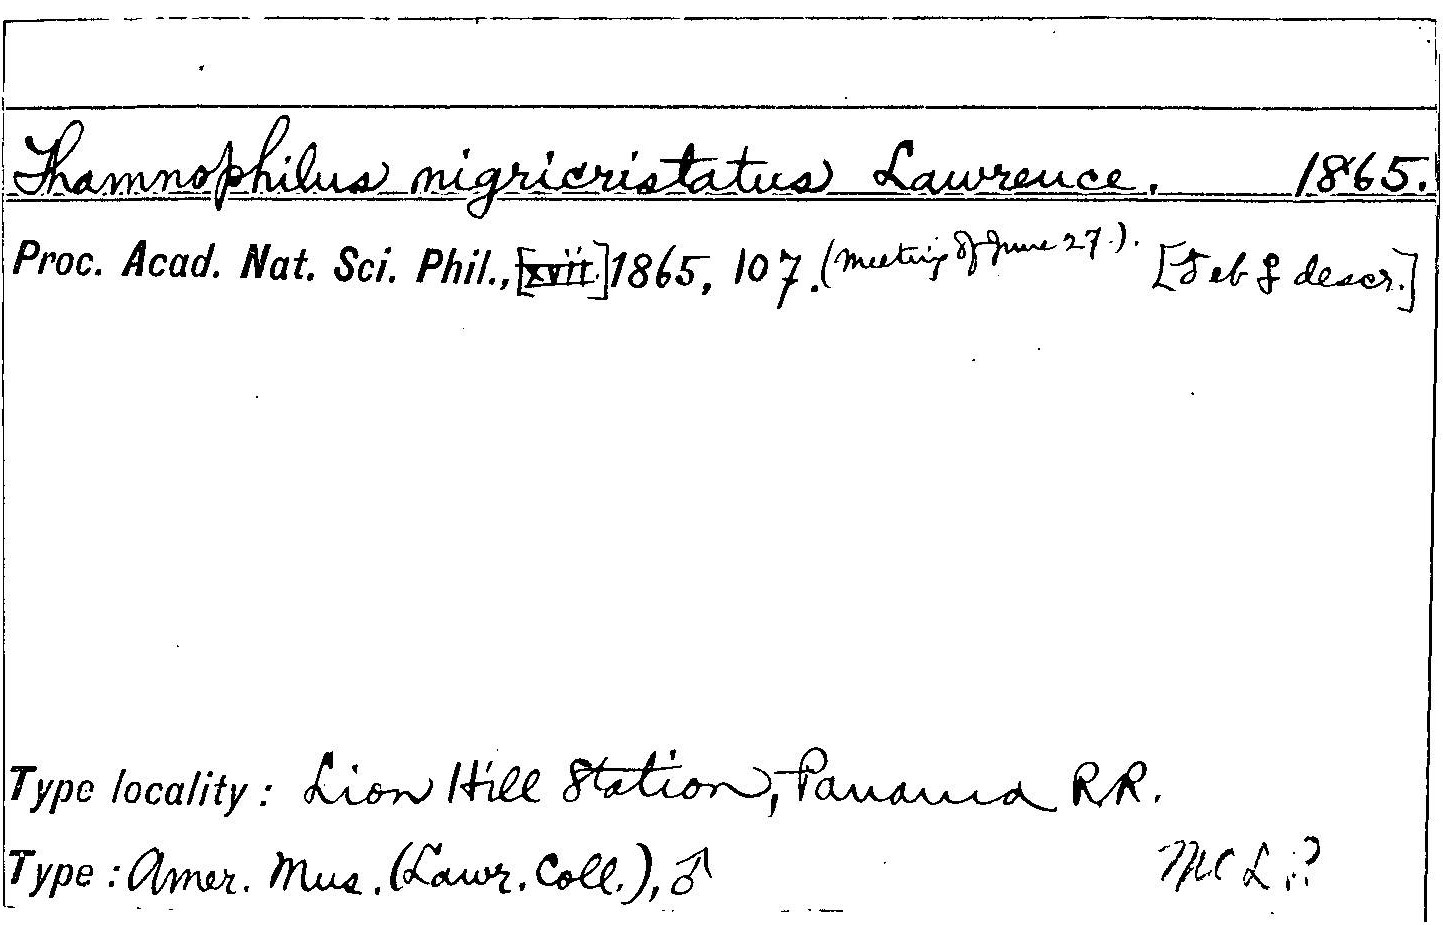 Thamnophilus nigricristatus Lawrence. 1865.
Proc. Acad. Nat. Sci. Phil., [xvii.] 1865, 107. (Meeting of June 27.). [♂ et ♀ descr.]
Type locality: Lion Hill Station, Panama RR.
Type: Amer. Mus. (Lawr. Coll.), ♂